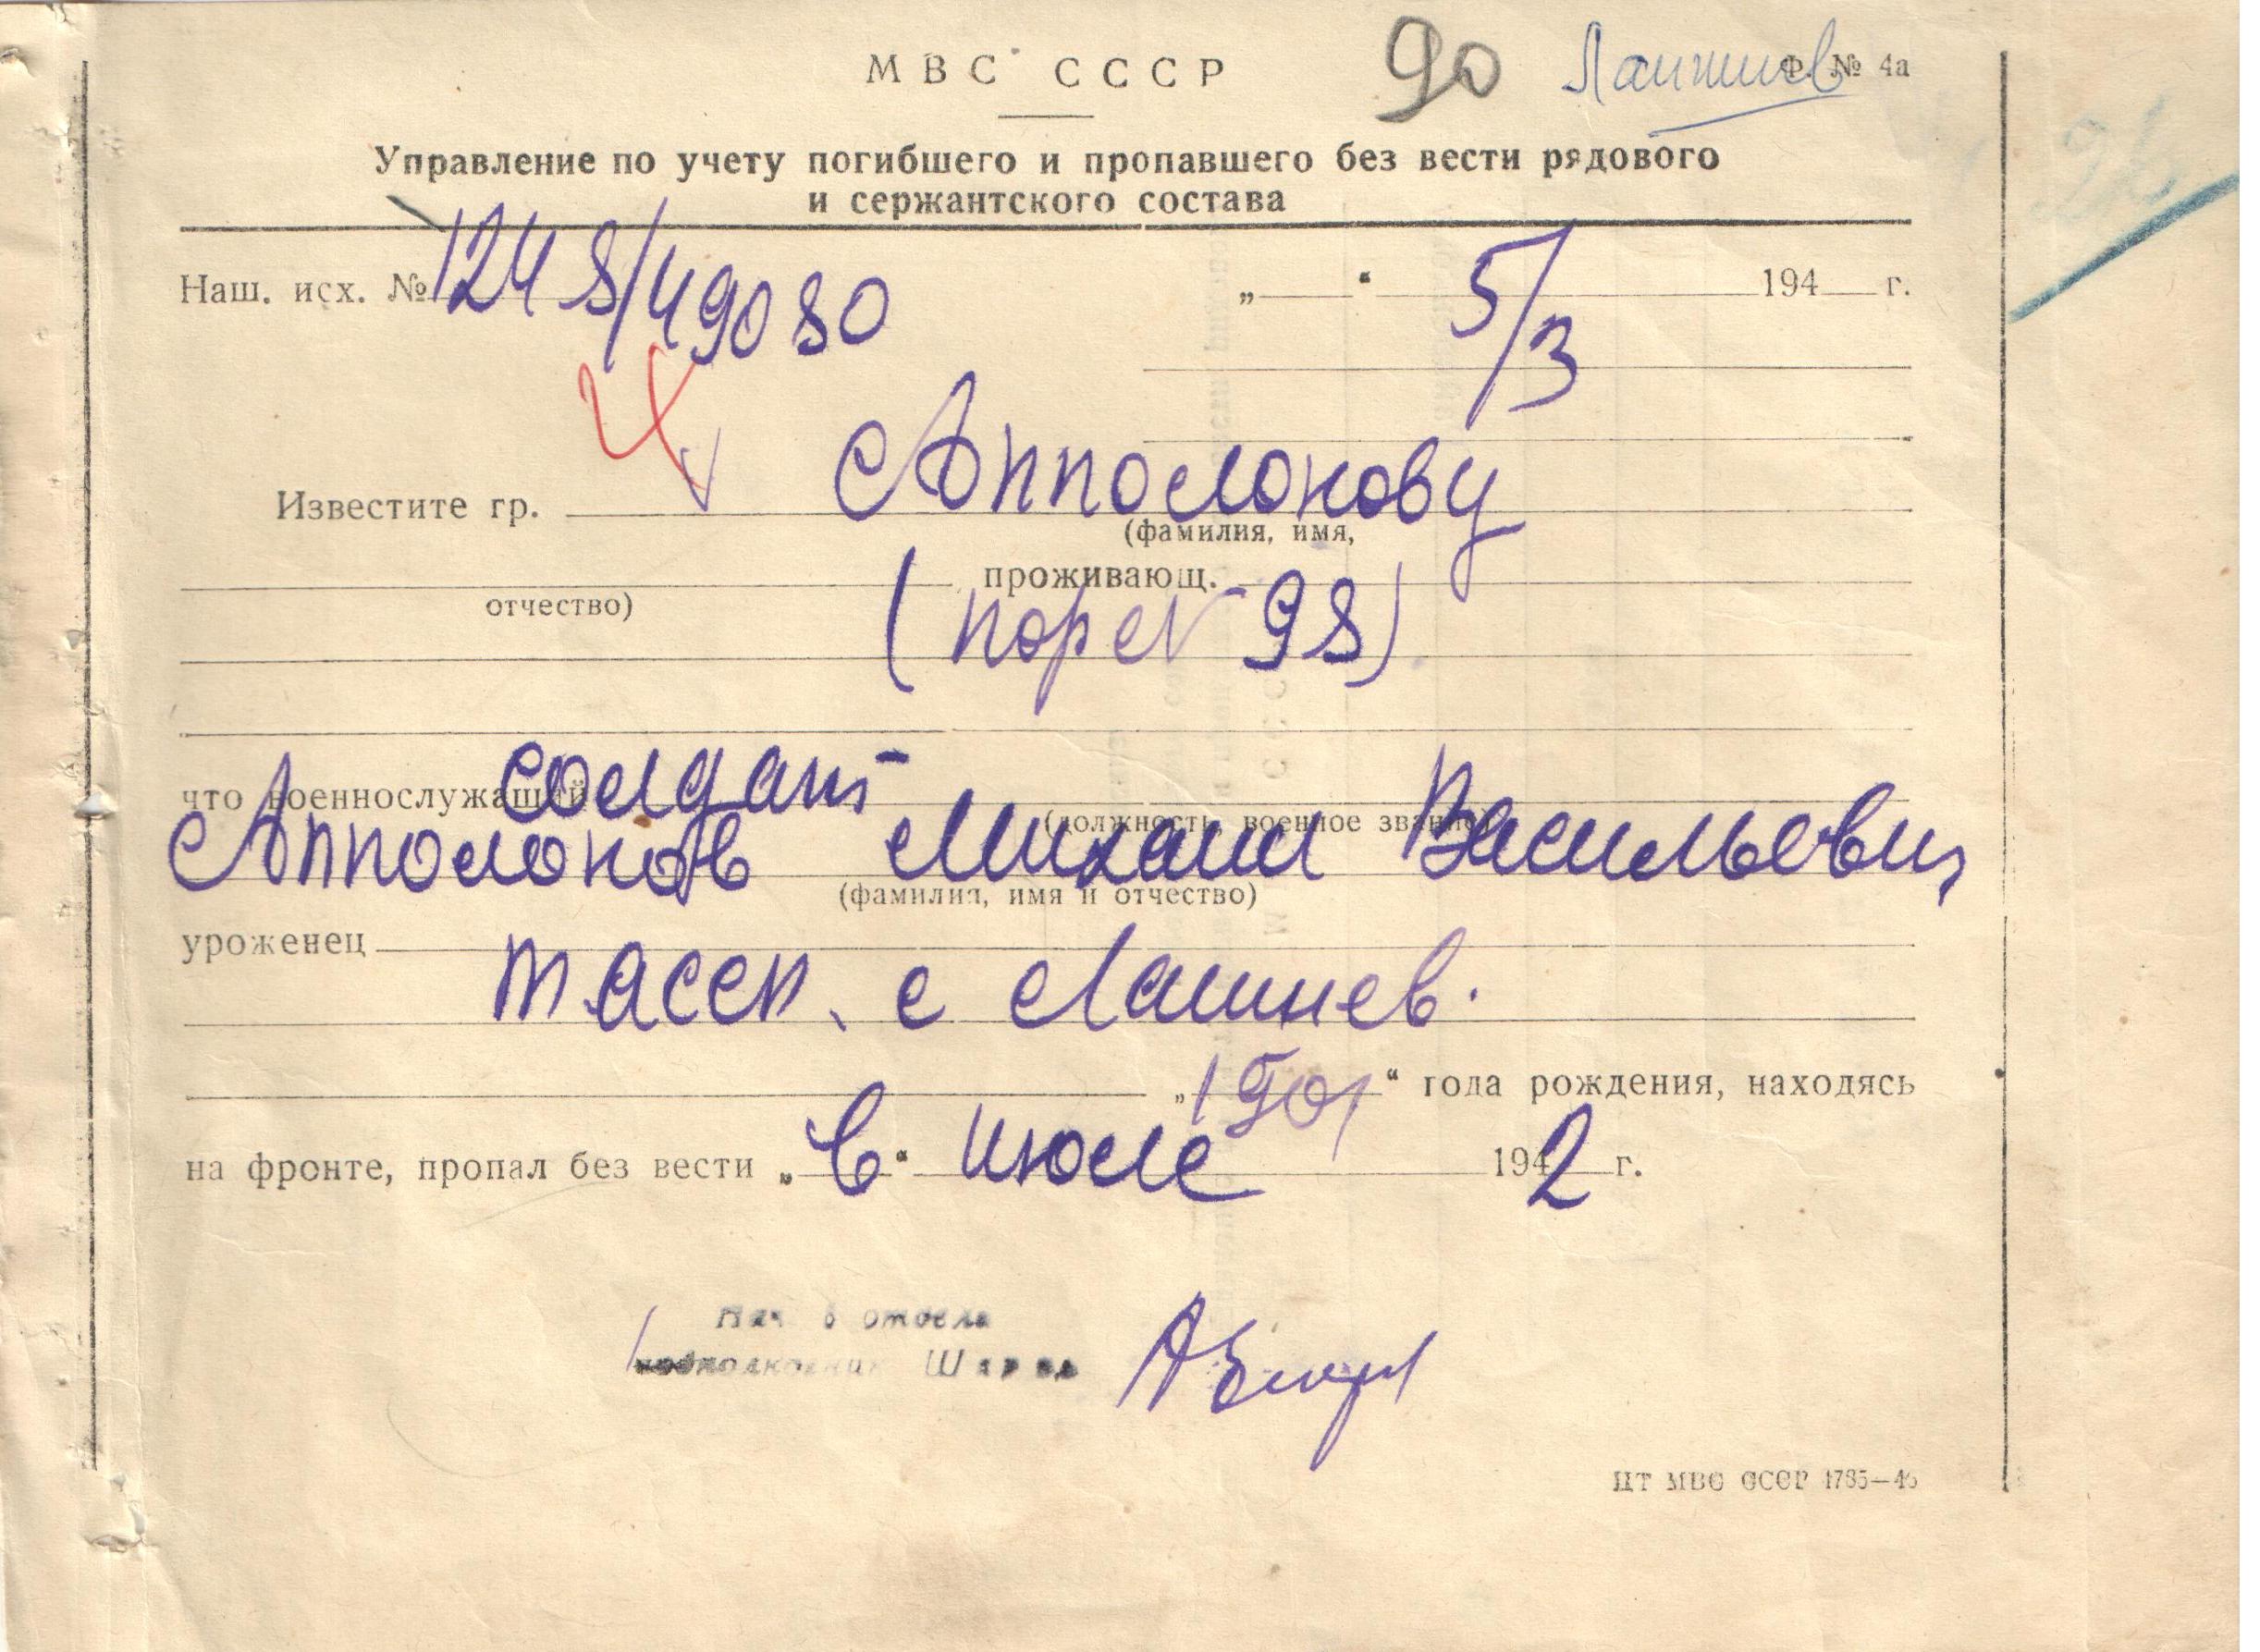 МВС СССР 90 Лаишев Ф. № 4а
Управление по учету погибшего и пропавшего без вести рядового
и сержантского состава
Наш. исх. № 1248/49080 „ “ 5/3 194 г.
Известите гр. Апполонову
(фамилия, имя,
проживающ.
отчество)
98)
что военнослужащий солдат
(должность, военное звание)
Апполонов Михаил Васильевич
(фамилия, имя и отчество)
уроженец
ТАССР. с
„1901“ года рождения, находясь
на фронте, пропал без вести „в“ июле 1942 г.
Нач 6 отдела
подполковник
ЦТ МВС СССР 1785—46